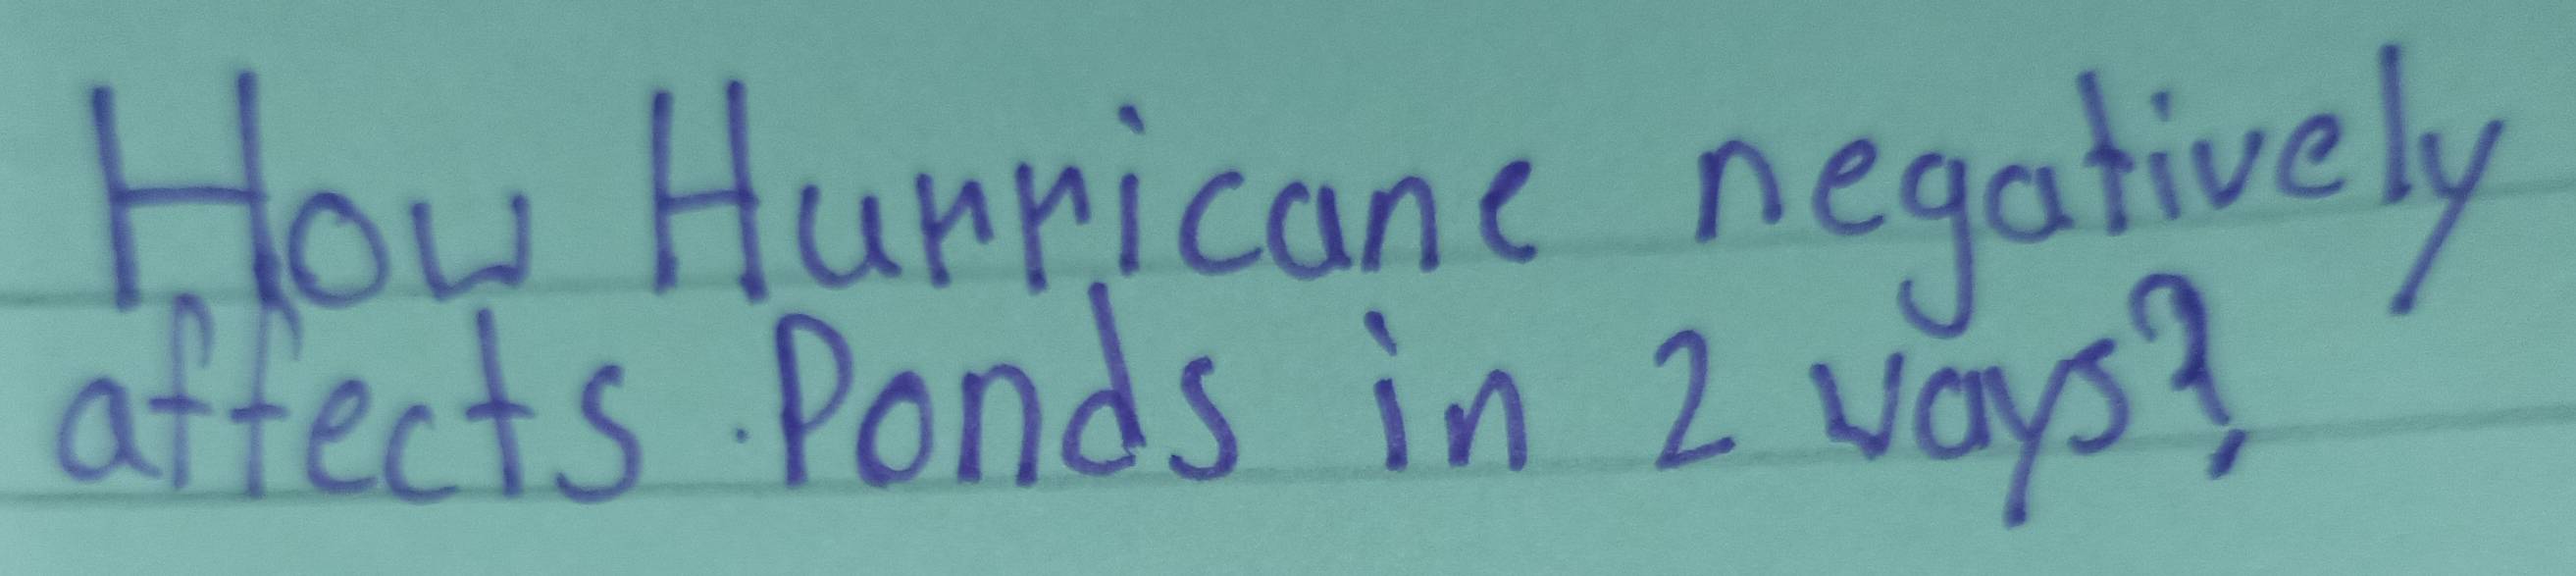 How Hurricane negatively
affects Ponds in 2 ways?